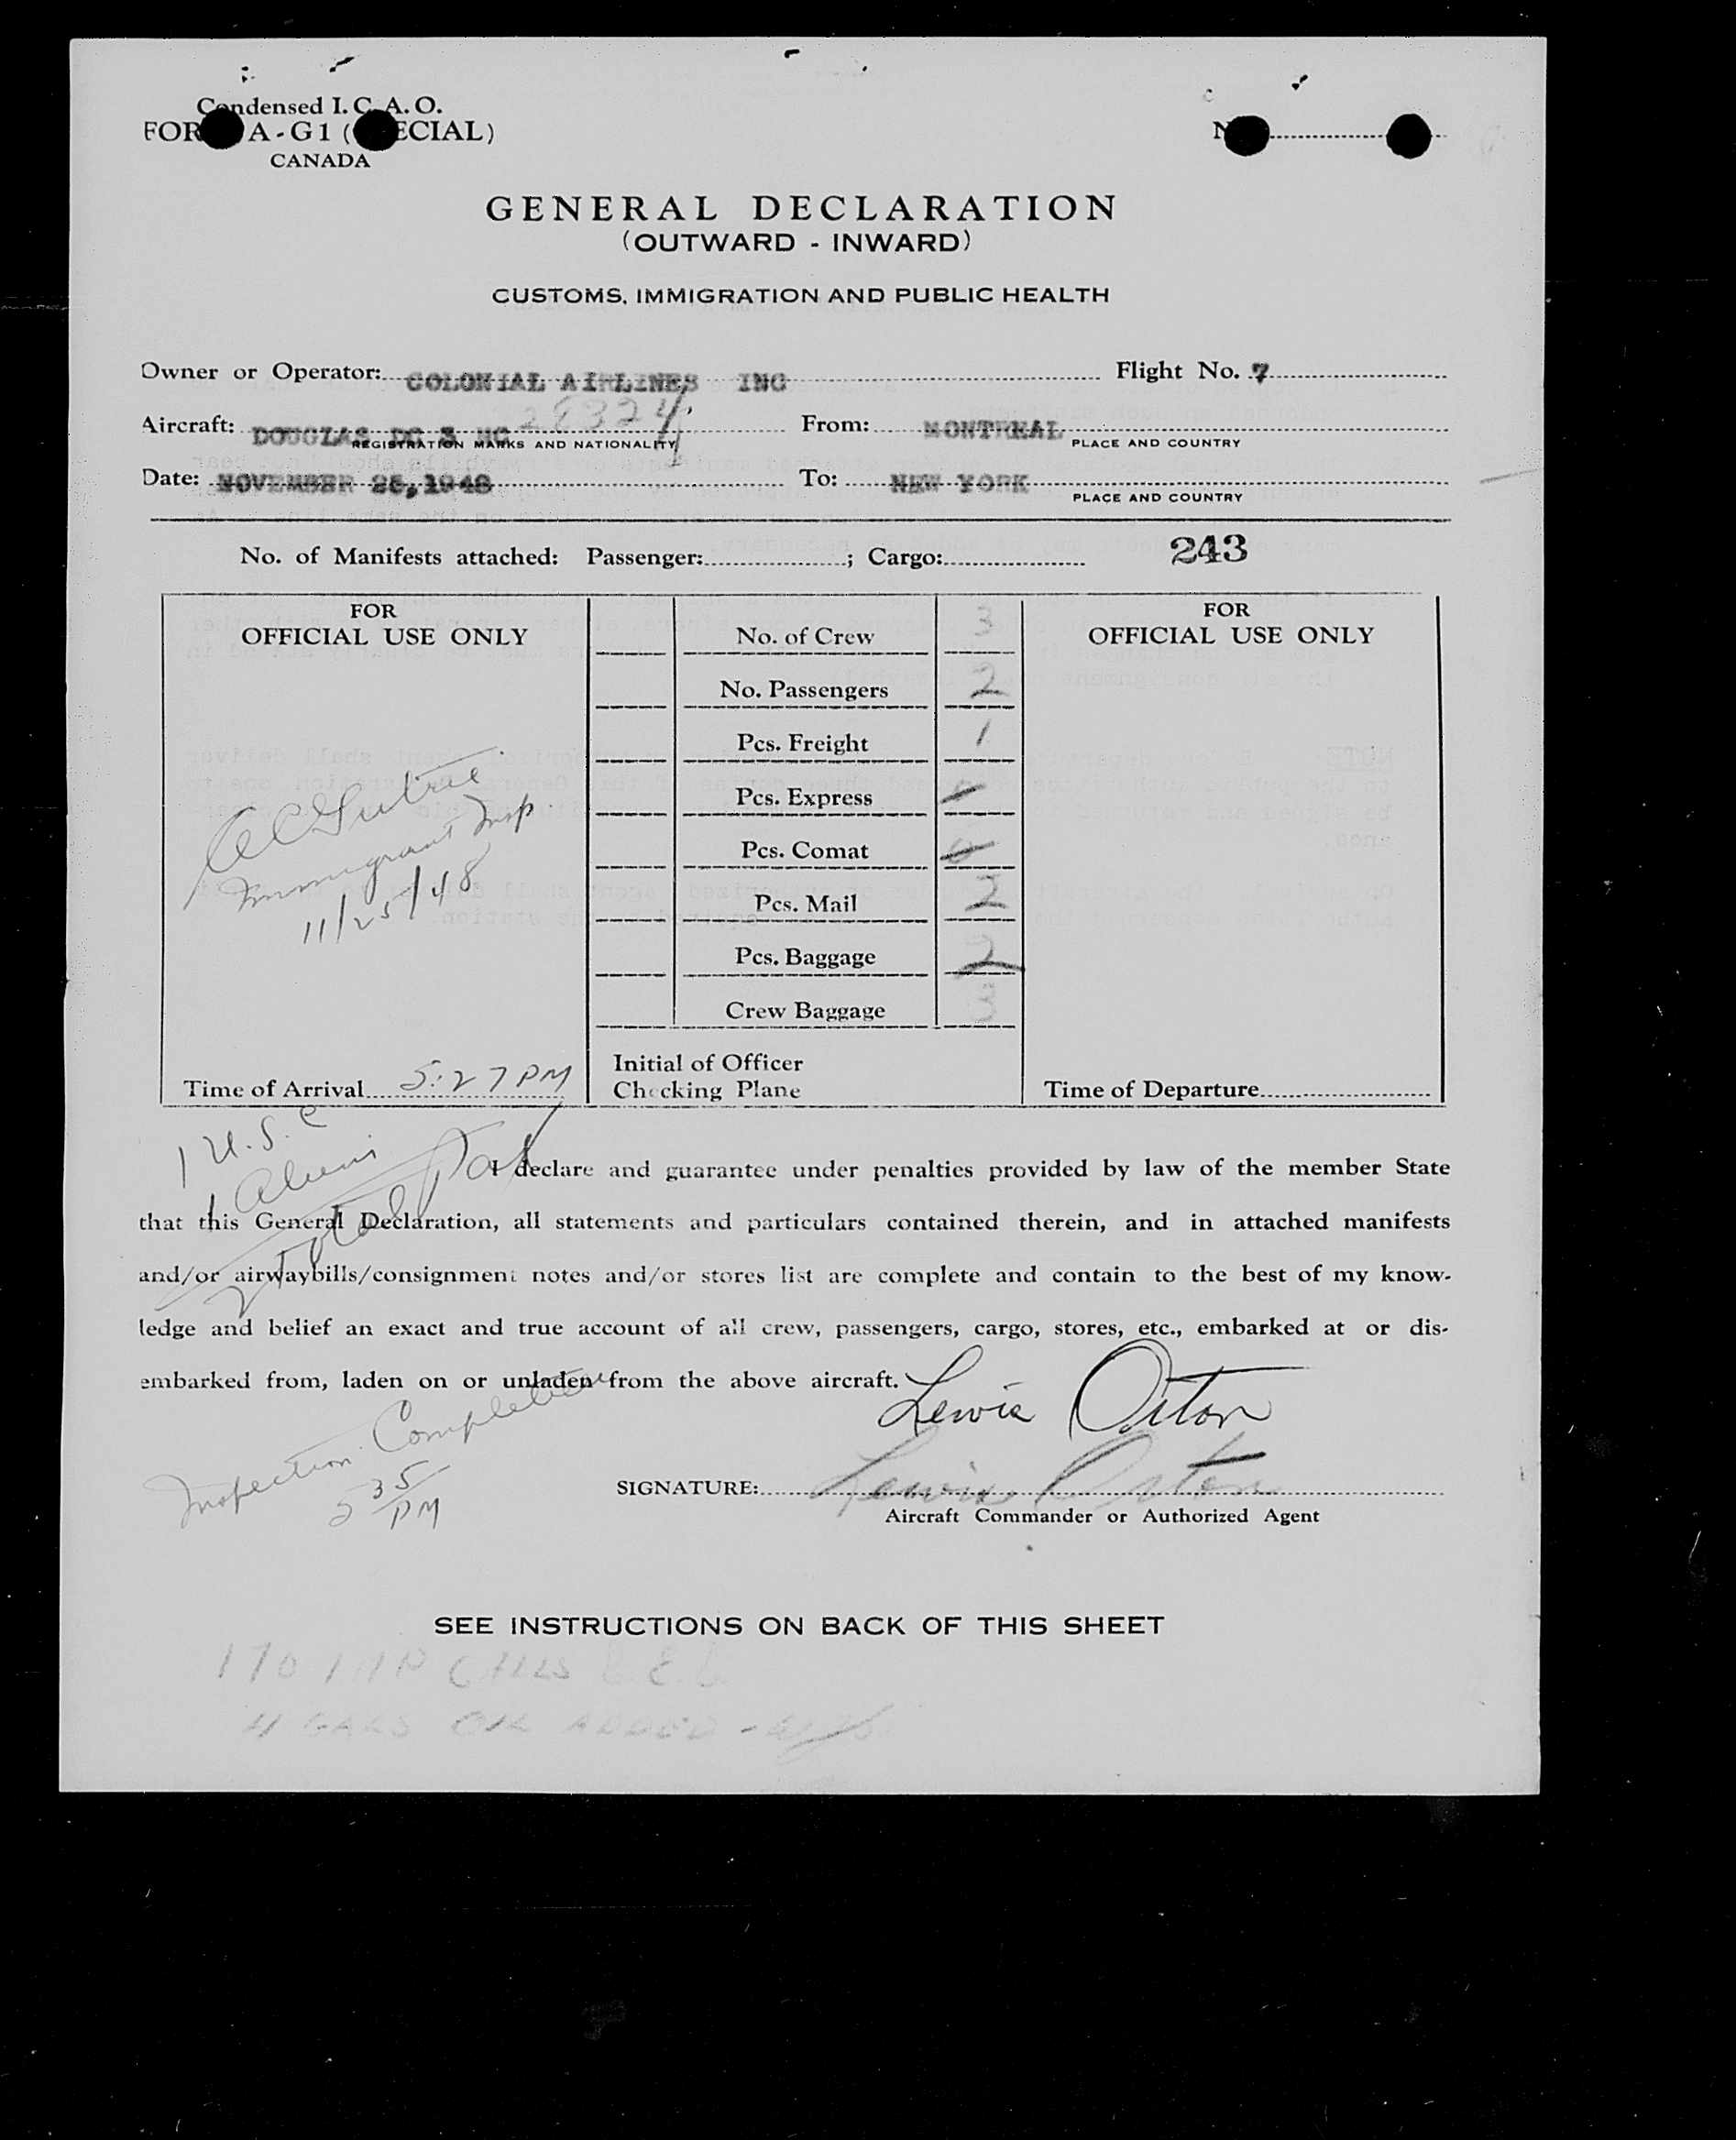 Condensed I. C. A. O.
FOR A-G1 ( ECIAL)
CANADA
N
GENERAL DECLARATION
(OUTWARD - INWARD)
CUSTOMS, IMMIGRATION AND PUBLIC HEALTH
Owner or Operator: COLONIAL AIRLINES INC Flight No. 7
Aircraft: DOUGLAS DC 3 NC 28324 From: MONTREAL
REGISTRATION MARKS AND NATIONALITY PLACE AND COUNTRY
Date: NOVEMBER 25, 1948 To: NEW YORK
PLACE AND COUNTRY
No. of Manifests attached: Passenger: ; Cargo: 243
FOR
OFFICIAL USE ONLY
Immigrant Insp.
11/25/48
Time of Arrival 5:27 PM
No. of Crew 3
No. Passengers 2
Pcs. Freight 1
Pcs. Express
Pcs. Comat 0
Pcs. Mail 2
Pcs. Baggage 2
Crew Baggage 3
Initial of Officer
Checking Plane
FOR
OFFICIAL USE ONLY
Time of Departure
1 U.S.C
1 Aliens
2 Total
I declare and guarantee under penalties provided by law of the member State
that this General Declaration, all statements and particulars contained therein, and in attached manifests
and/or airwaybills/consignment notes and/or stores list are complete and contain to the best of my know-
ledge and belief an exact and true account of all crew, passengers, cargo, stores, etc., embarked at or dis-
embarked from, laden on or unladen from the above aircraft.
Lewis Orton
Inspection Completed
5 35 PM
SIGNATURE: Lewis Orton
Aircraft Commander or Authorized Agent
SEE INSTRUCTIONS ON BACK OF THIS SHEET
170
ADDED